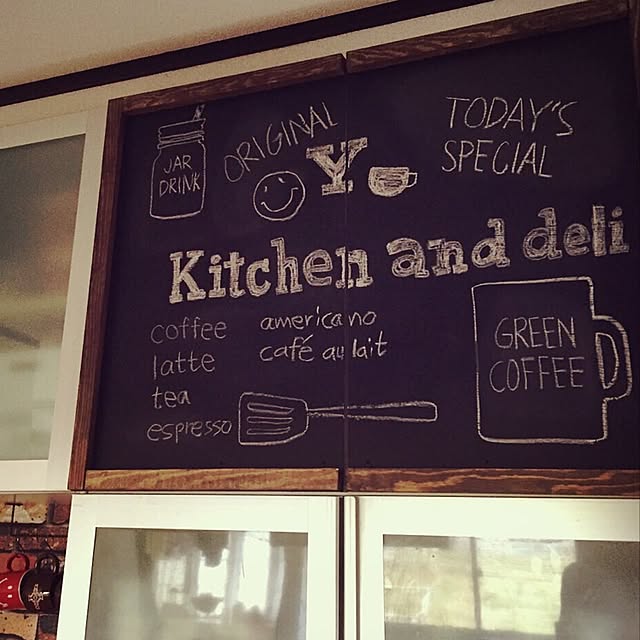 JAR
DRINK
ORIGINAL
Y
TODAY'S
SPECIAL
Kitchen and deli
coffee
latte
tea
espresso
americano
café au lait
GREEN
COFFEE